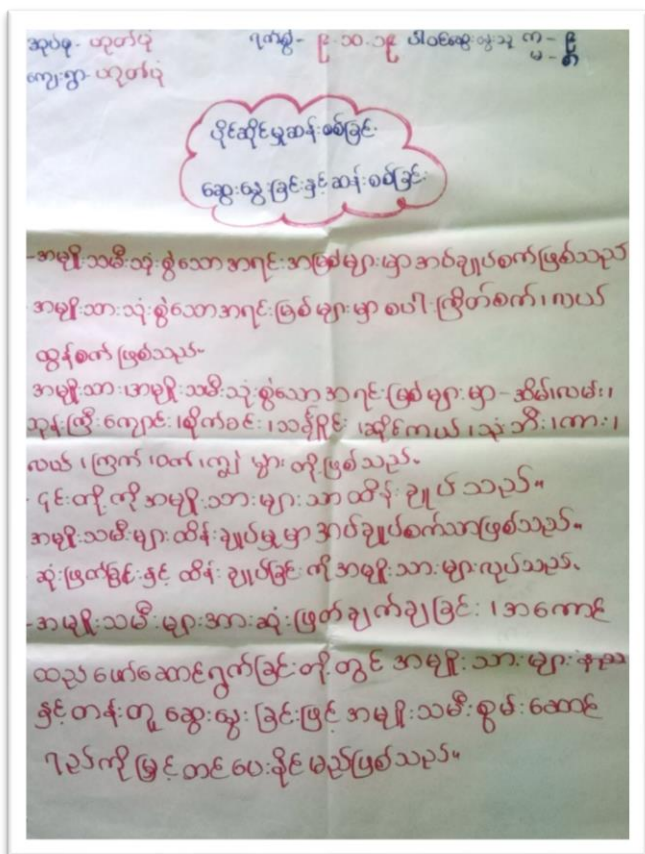 အုပ်စု - ဟုတ်ပုံ ရက်စွဲ - ၉.၁၀.၁၉ ပါဝင်ဆွေးနွေးသူ ကျ - မ -
ကျေးရွာ - ဟုတ်ပုံ
ပိုင်ဆိုင်မှုဆန်းစစ်ခြင်း
ဆွေးနွေးခြင်းနှင့်ဆန်းစစ်ခြင်း
- အမျိုးသမီးသုံးစွဲသောအရင်းအမြစ်များမှာအပ်ချုပ်စက်ဖြစ်သည်
- အမျိုးသားသုံးစွဲသောအရင်းမြစ်များမှာစပါးကြိတ်စက်၊လယ်
ထွန်စက်ဖြစ်သည်။
အမျိုးသား၊အမျိုးသမီးသုံးစွဲသောအရင်းမြစ်များမှာ - အိမ်၊လမ်း၊
ဘုန်းကြီးကျောင်း၊စိုက်ခင်း၊သချိုင်း၊ဆိုင်ကယ်၊သုံးဘီး၊ကား၊
လယ်၊ကြက်၊ဝက်၊ကျွဲ၊နွားတို့ဖြစ်သည်။
- ၎င်းတို့ကိုအမျိုးသားများသာထိန်းချုပ်သည်။
အမျိုးသမီးများထိန်းချုပ်မှုမှာအပ်ချုပ်စက်သာဖြစ်သည်။
ဆုံးဖြတ်ခြင်းနှင့်ထိန်းချုပ်ခြင်းကိုအမျိုးသားများလုပ်သည်။
- အမျိုးသမီးများအားဆုံးဖြတ်ချက်ချခြင်း၊အကောင်
ထည်ဖော်ဆောင်ရွက်ခြင်းတို့တွင်အမျိုးသားများနည်း
နှင့်တန်းတူဆွေးနွေးခြင်းဖြင့်အမျိုးသမီးစွမ်းဆောင်
ရည်ကိုမြှင့်တင်ပေးနိုင်မည်ဖြစ်သည်။